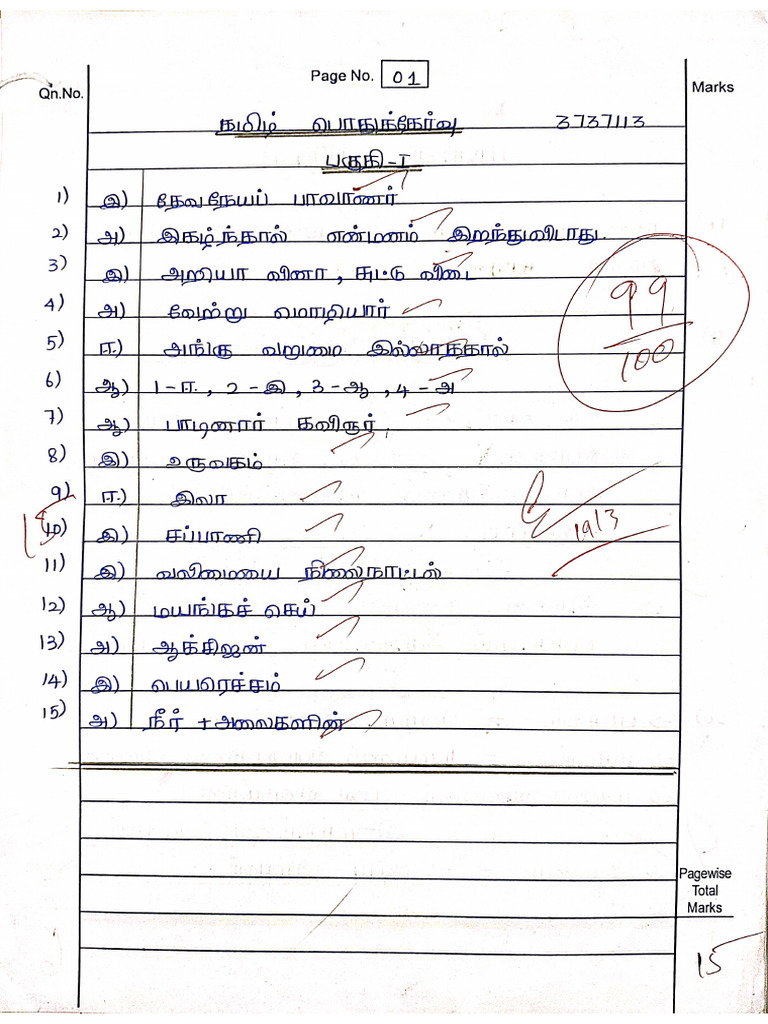 Page No. 01
Qn.No.
Marks
தமிழ் பொதுத்தேர்வு 3737113
பகுதி-I
1) இ) தேவநேயப் பாவாணர்
2) அ) இகழ்ந்தால் என்மனம் இறந்துவிடாது.
3) இ) அறியா வினா, சுட்டு விடை
4) அ) வேற்று மொழியார்
99
100
5) ஈ) அங்கு வறுமை இல்லாததால்
6) ஆ) 1-ஈ, 2-இ, 3-ஆ, 4-அ
7) ஆ) பாடினார் கவிஞர்.
8) இ) உருவகம்
9) ஈ) இலா
15
10) இ) சப்பாணி
19/3
11) இ) வலிமையை நிலைநாட்டல்
12) ஆ) மயங்கச் செய்
13) அ) ஆக்சிஜன்
14) இ) பெயரெச்சம்
15) அ) நீர் + அலைகளின்
Pagewise
Total
Marks
15